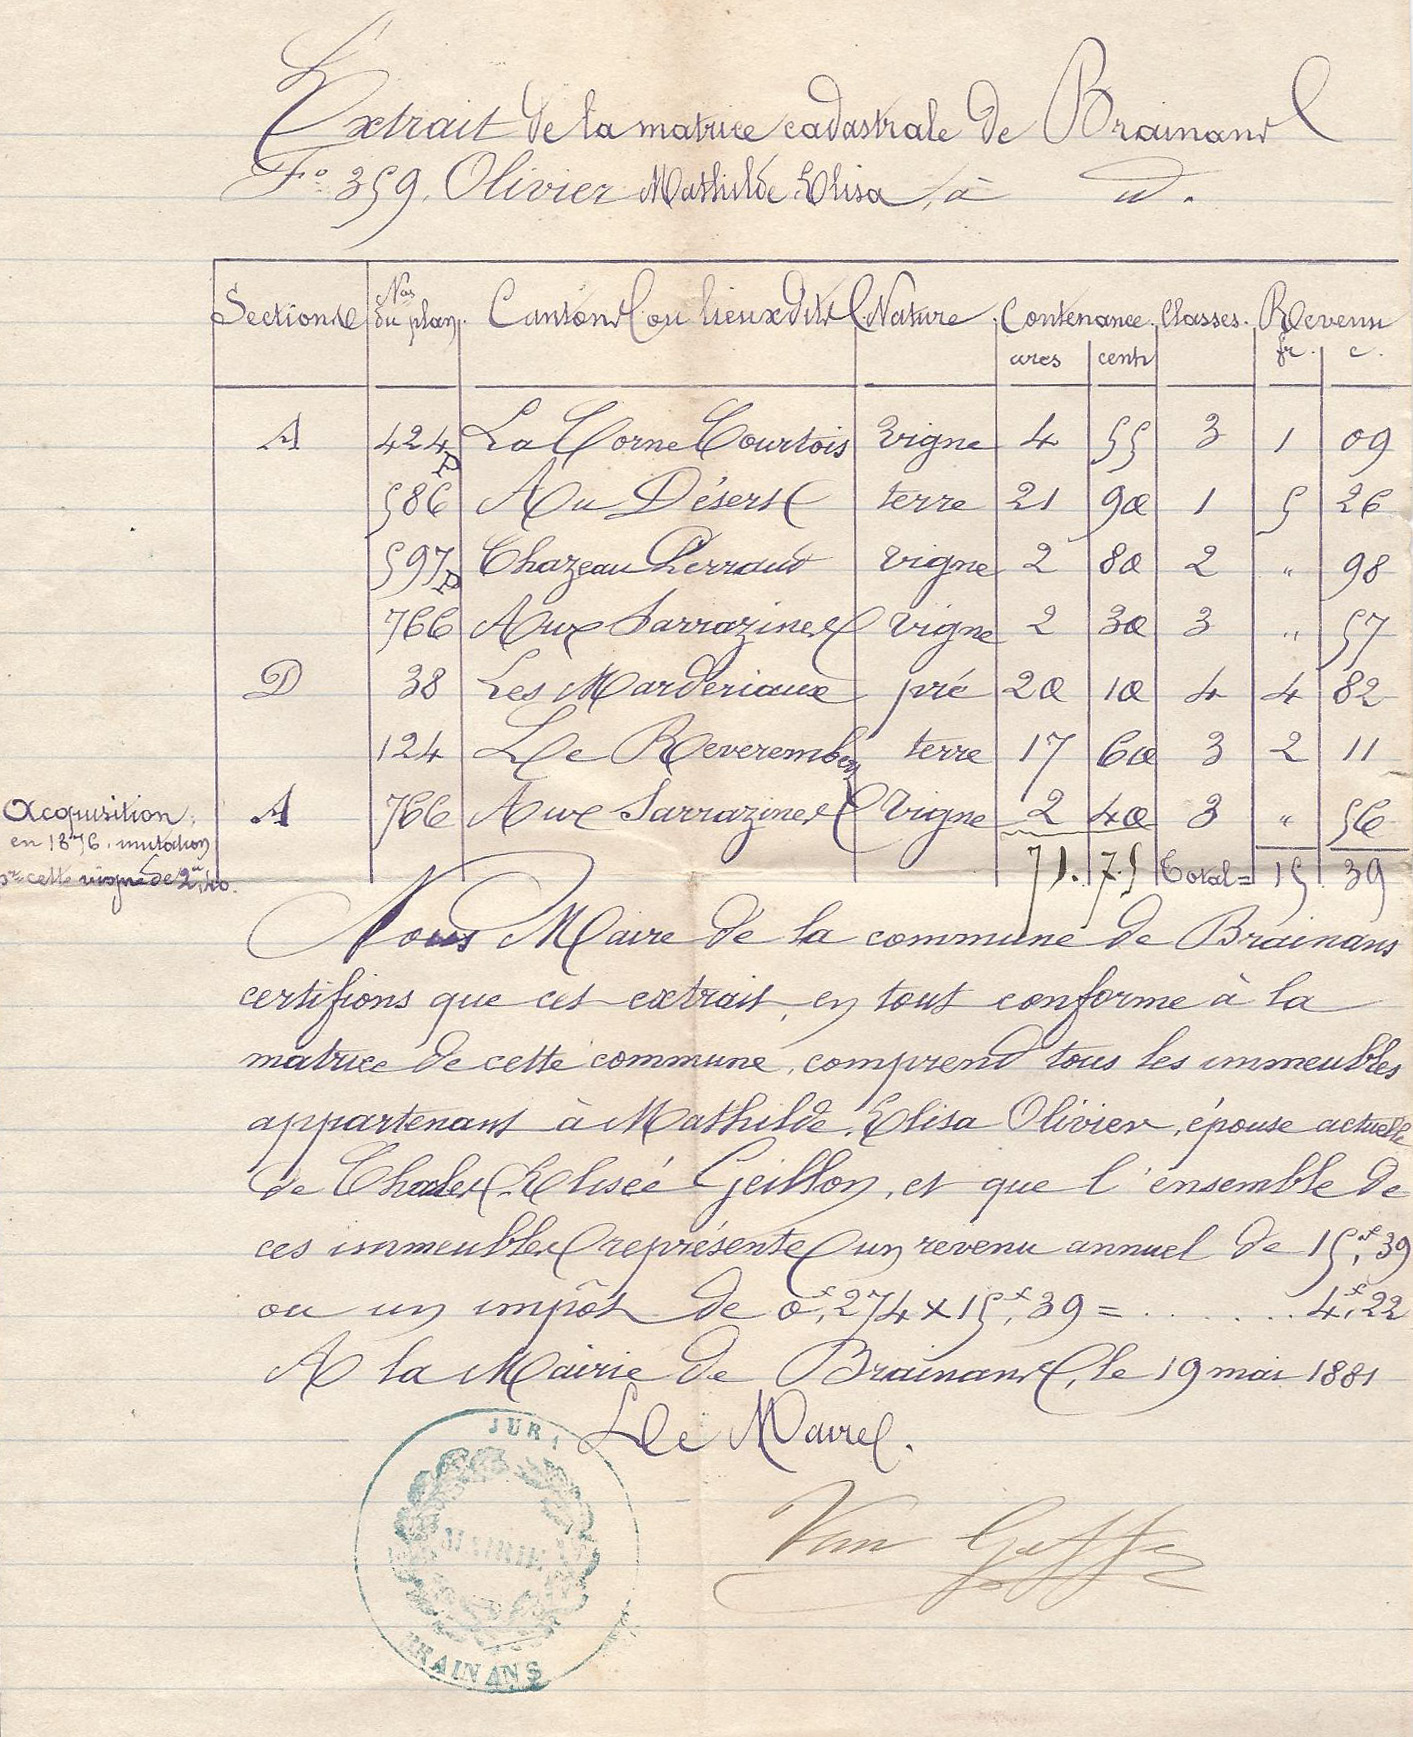 Extrait de la matrice cadastrale de Brainans
F° 359. Olivier Mathilde Elisa, à d°.
Sections Nos du plan. Cantons ou lieuxdits Nature. Contenance. Classes. Revenu
ares centi fr. c.
A 424 p La Corne Courtois vigne 4 55 3 1 09
586 Au Désert terre 21 90 1 5 26
597 p Chazeau Perraud vigne 2 80 2 " 98
766 Aux Sarrazines vigne 2 30 3 " 57
D 38 Les Marderiaux pré 20 10 4 4 82
124 Le Reverembey terre 17 60 3 2 11
Acquisition
en 1876. mutation
pr cette vigne de 2a,40.
A 766 Aux Sarrazines vigne 2 40 3 " 56
71.75 Total = 15 39
Nous Maire de la commune de Brainans
certifions que cet extrait, en tout conforme à la
matrice de cette commune, comprend tous les immeubles
appartenant à Mathilde Elisa Olivier, épouse actuelle
de Charles Elisée Geillon, et que l'ensemble de
ces immeubles représente un revenu annuel de 15f,39
ou un impôt de 0f,274 x 15f,39 = . . . . . . . 4f,22
A la Mairie de Brainans, le 19 mai 1881
Le Maire.
JURA
MAIRIE
BRAINANS